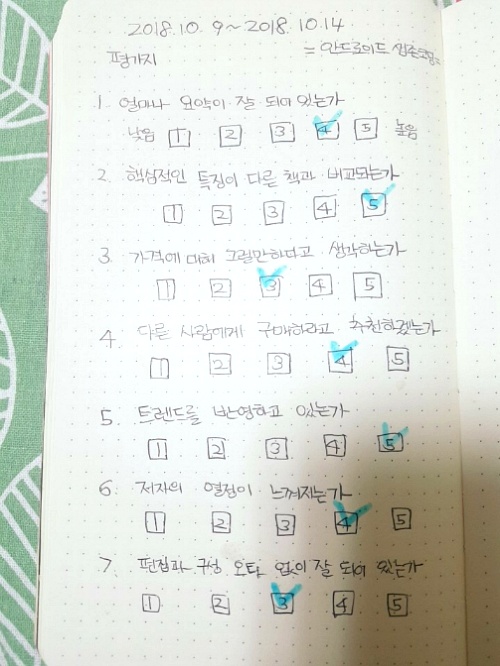 2018.10.9~2018.10.14
= 안드로이드
평가지
1 얼마나 요약이 잘 되어 있는가
낮음 1 2 3 4 5 높음
2 핵심적인 특징이 다른 책과 비교되는가
1 2 3 4 5
3 가격에 대해 그럴만하다고 생각하는가
1 2 3 4 5
4 다른 사람에게 구매하라고 추천하겠는가
1 2 3 4 5
5 트렌드를 반영하고 있는가
1 2 3 4 5
6 저자의 열정이 느껴지는가
1 2 3 4 5
7 편집과 구성 오타 없이 잘 되어 있는가
1 2 3 4 5